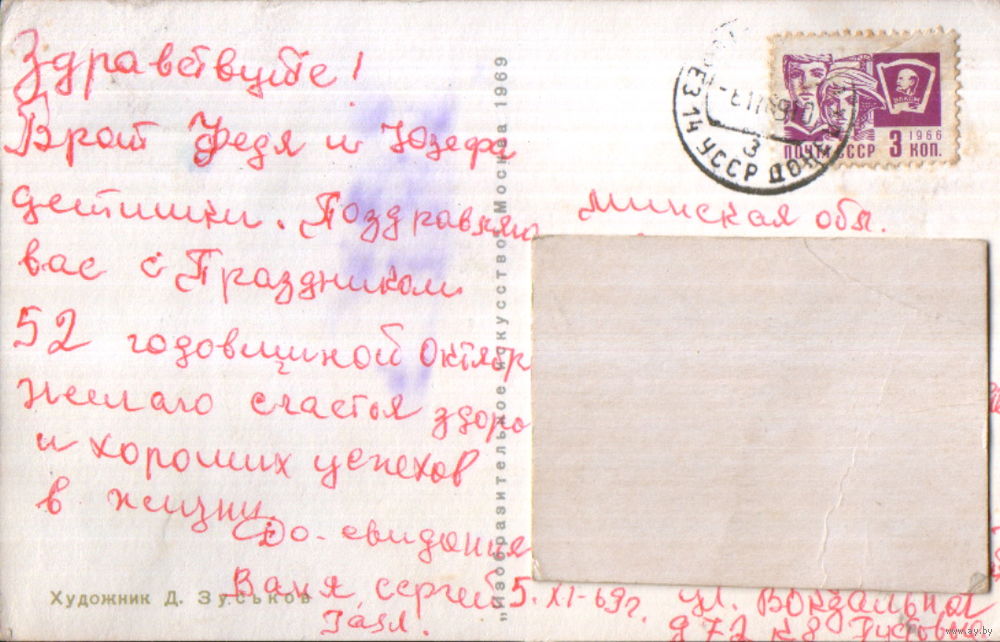 Здравствуйте!
Брат Федя и Юзефа
детишки. Поздравляю
вас с Праздником
52 годовщиной Октябр
желаю счастья здоро
и хороших успехов
в жизни.
До-свидания
Ваня, Сергей
5.XI-69г.
Художник Д. Зуськов
„Изобразительное искусство“ Москва 1969
ПОЧТА СССР 3 КОП.
1966
ВЛКСМ
14 УССР ДОН
3
Минская обл.
ул. Вокзальная
www.ay.by